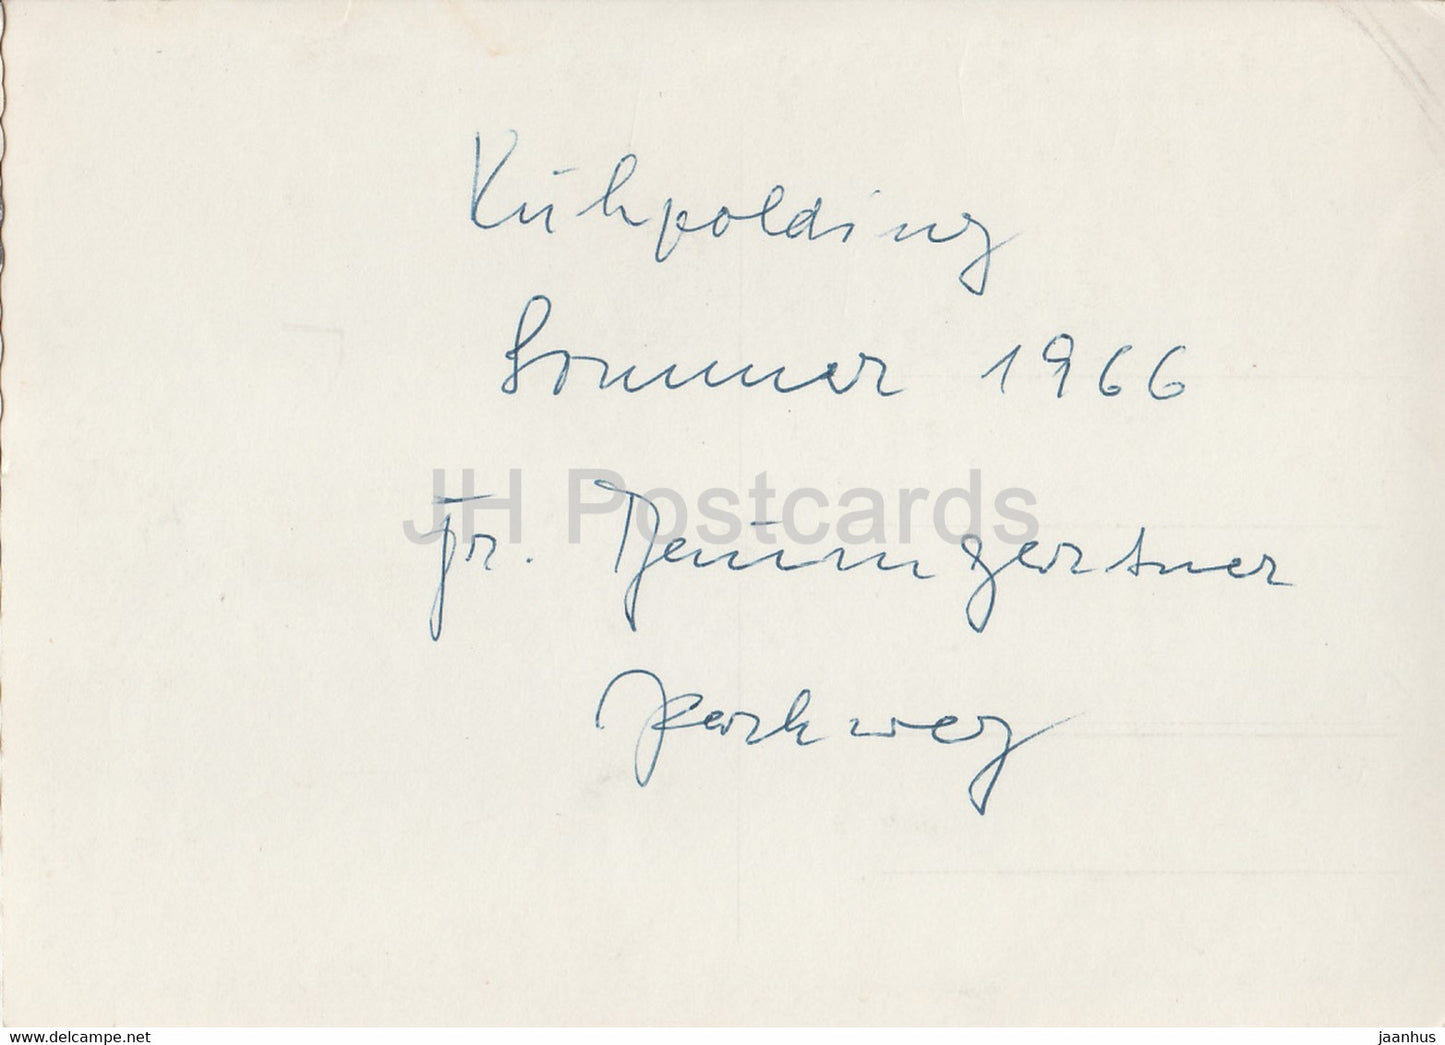 Ruhpolding
Sommer 1966
JH Postcards
Fr. Baumgartner
Parkweg
www.hippostcard.com
jaanhus